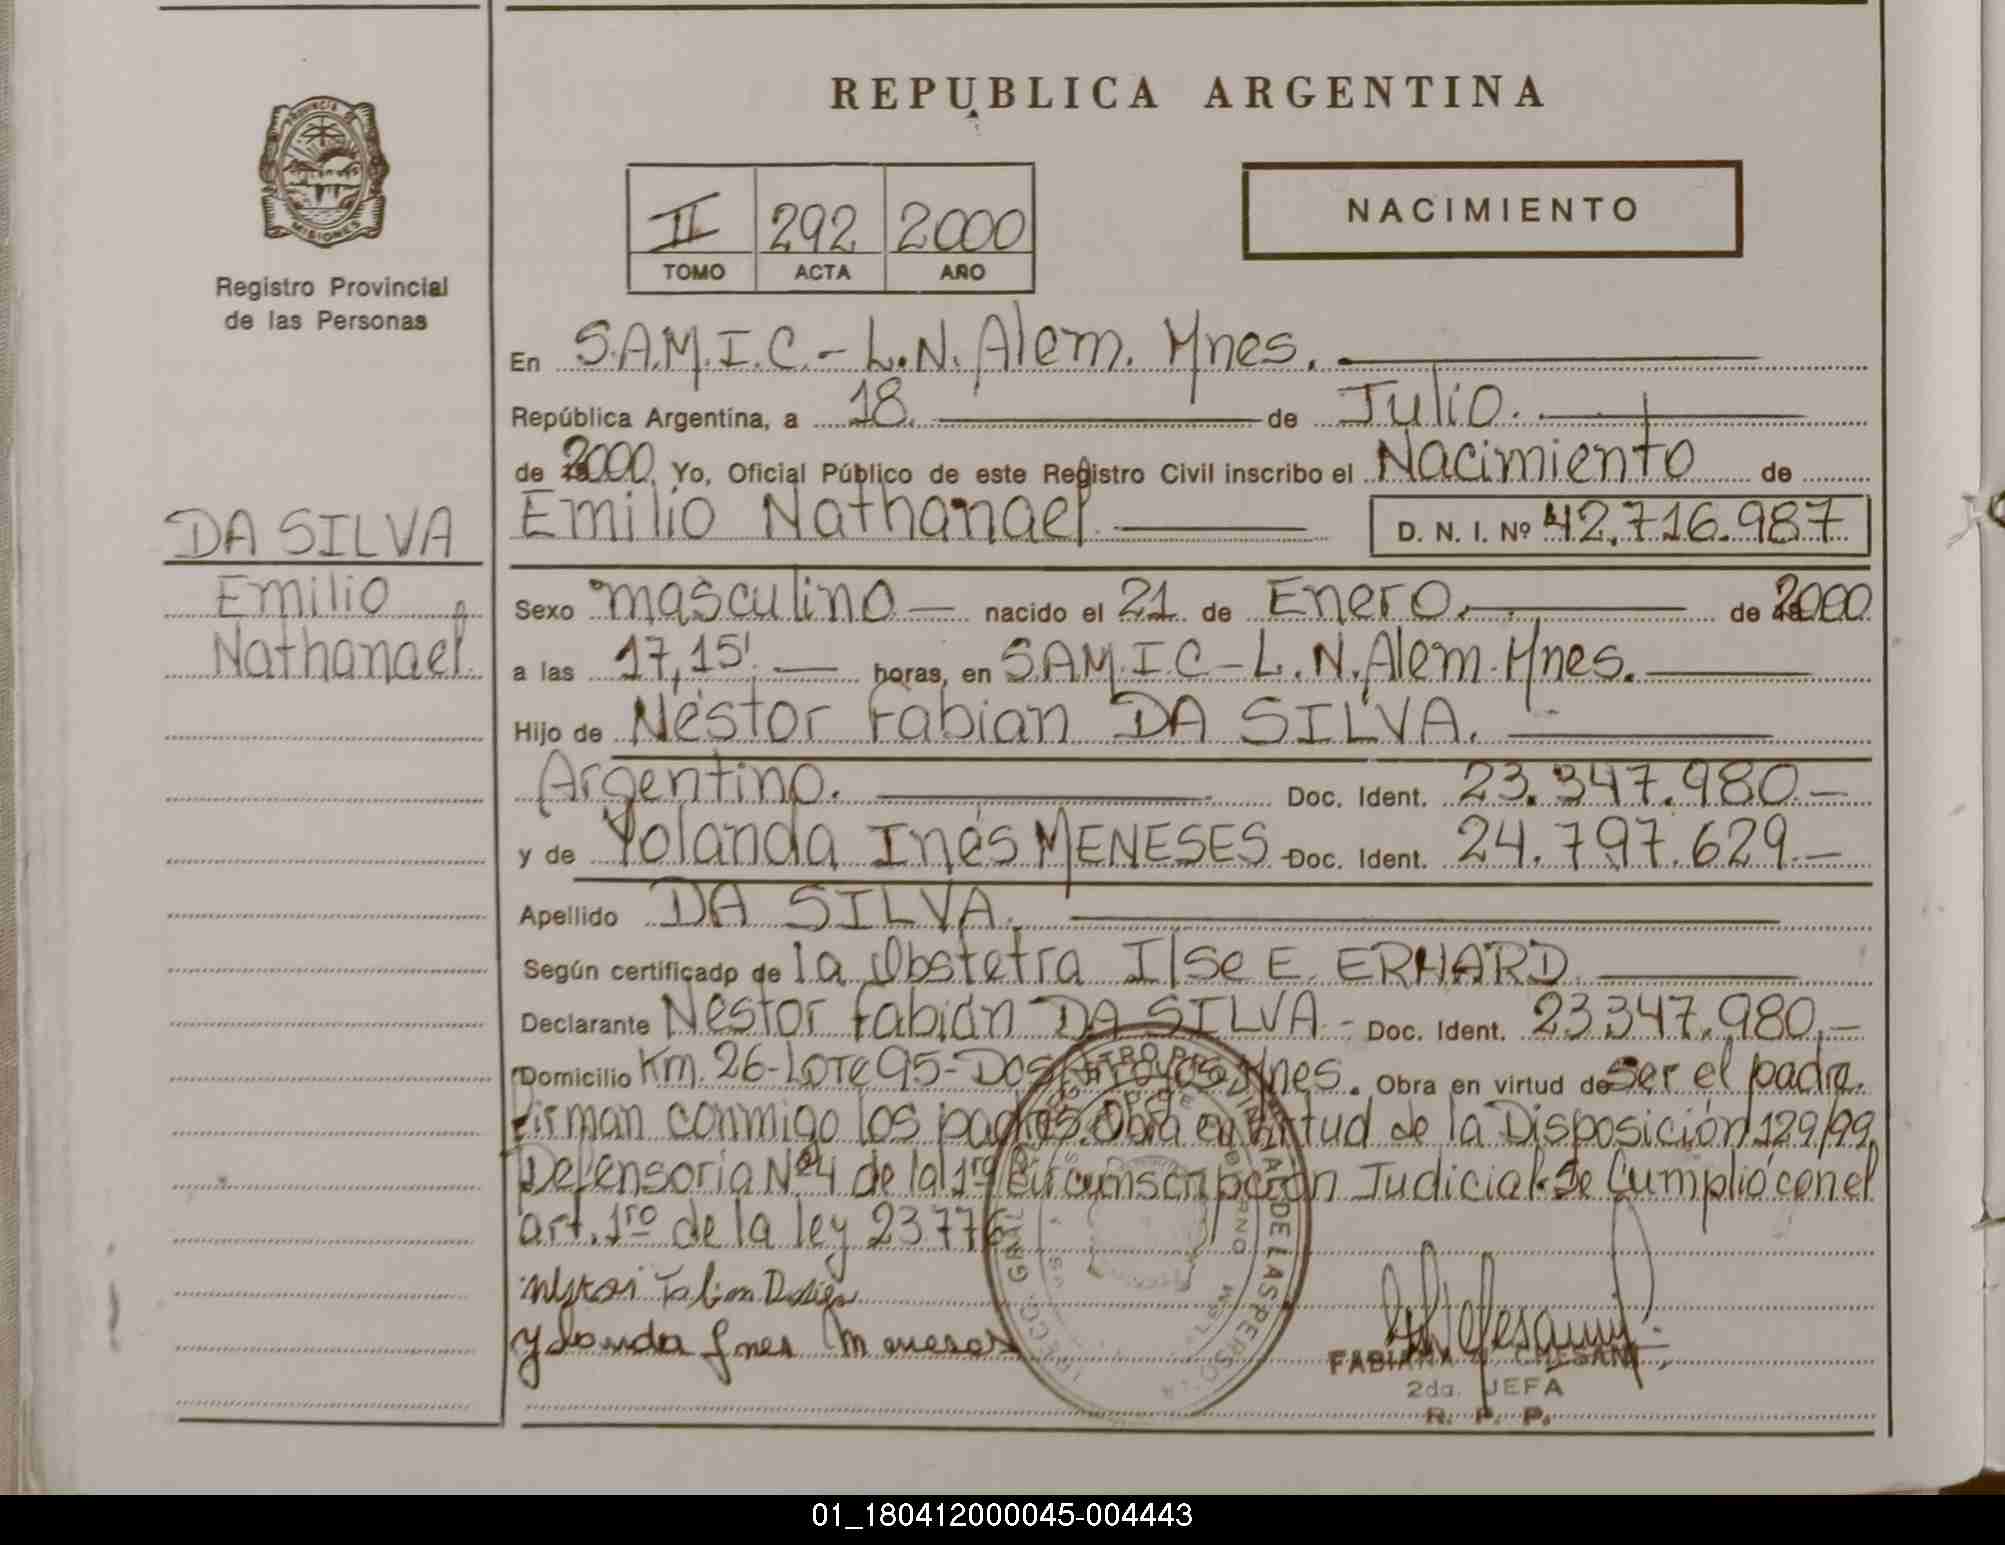 REPUBLICA ARGENTINA
PROVINCIA
MISIONES
Registro Provincial
de las Personas
II 292 2000
TOMO ACTA AÑO
NACIMIENTO
En S.A.M.I.C.- L.N. Alem. Mnes.
República Argentina, a 18. de Julio.
de 2000. Yo, Oficial Público de este Registro Civil inscribo el Nacimiento de
DA SILVA
Emilio
Nathanael
Emilio Nathanael D. N. I. Nº 42.716.987
Sexo masculino nacido el 21 de Enero. de 2000
a las 17,15'. horas, en S.A.M.I.C-L.N. Alem. Mnes.
Hijo de Néstor Fabian DA SILVA.
Argentino. Doc. Ident. 23.347.980.-
y de Yolanda Inés MENESES Doc. Ident. 24.797.629.-
Apellido DA SILVA.
Según certificado de la Obstetra Ilse E. ERHARD.
Declarante Nestor Fabián DA SILVA.- Doc. Ident. 23.347.980.-
Domicilio Km. 26-Lote 95-Dos Arroyos Mnes. Obra en virtud de ser el padre.
Firman conmigo los padres. Obra en virtud de la Disposición 129/99,
Defensoria Nº4 de la 1ra Circunscripción Judicial. Se Cumplió con el
art. 1ro de la ley 23.776
Yolanda Ines Meneses
2da. JEFA
R. P. P.
01_180412000045-004443